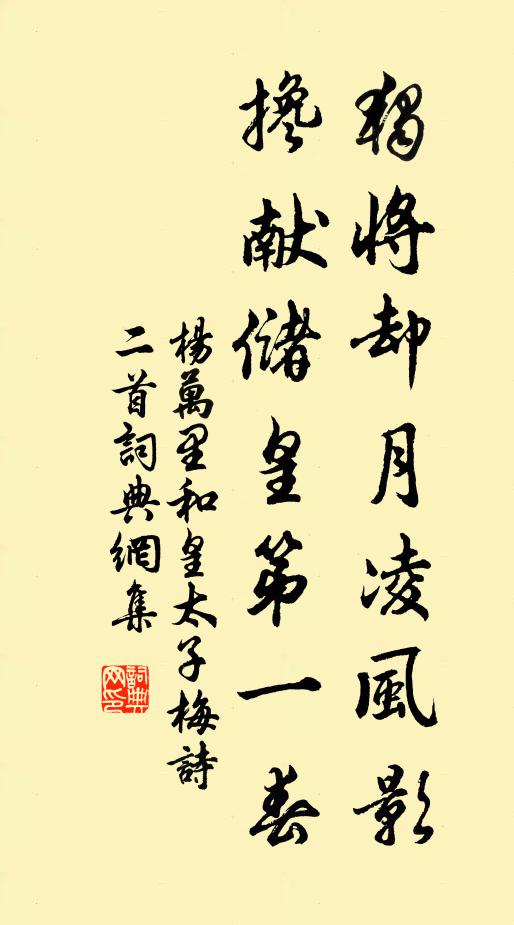 獨將却月凌風影
攙献儲皇第一春
楊萬里和皇太子梅詩
二首詞典網集
詞典網印